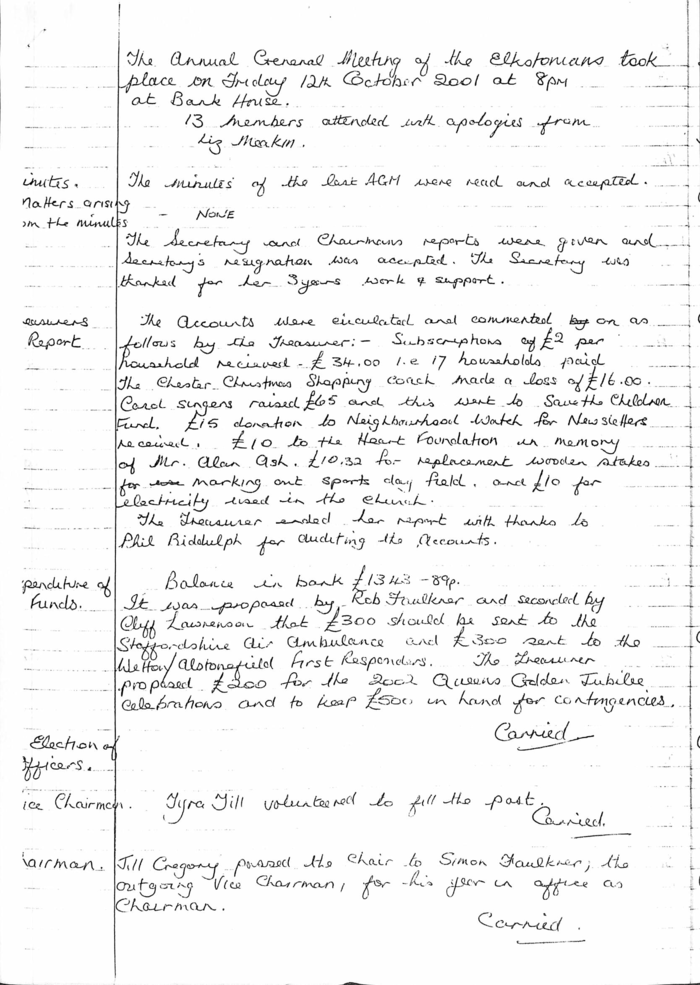 The Annual General Meeting of the Elkstonians took
place on Friday 12th October 2001 at 8pm
at Bank House.
13 members attended with apologies from
Liz Meakin.
inutes. The minutes of the last AGM were read and accepted.
Matters arising
om the minutes - NONE
The Secretary and Chairmans reports were given and
Secretary's resignation was accepted. The Secretary was
thanked for her 3 years work & support.
easurers The Accounts were circulated and commented by on as
Report follows by the Treasurer:- Subscriptions of £2 per
household recieved - £34.00 i.e 17 households paid
The Chester Christmas Shopping coach made a loss of £16.00.
Carol singers raised £65 and this went to Save the Children
Fund. £15 donation to Neighbourhood Watch for Newsletters
received. £10 to the Heart Foundation in memory
of Mr. Alan Ash. £10.32 for replacement wooden stakes
for marking out sports day field. and £10 for
electricity used in the church.
The Treasurer ended her report with thanks to
Phil Biddulph for auditing the Accounts.
penditure of Balance in bank £1343-89p.
Funds. It was proposed by Rob Faulkner and seconded by
Cliff Lawrenson that £300 should be sent to the
Staffordshire Air Ambulance and £300 sent to the
Wetton/Alstonefield First Responders. The Treasurer
proposed £200 for the 2002 Queens Golden Jubilee
celebrations and to keep £500 in hand for contingencies.
Carried
Election of
fficers.
ice Chairman. Tyra Till volunteered to fill the post.
Carried.
airman. Jill Gregory passed the Chair to Simon Faulkner; the
outgoing Vice Chairman, for his year in office as
Chairman.
Carried.